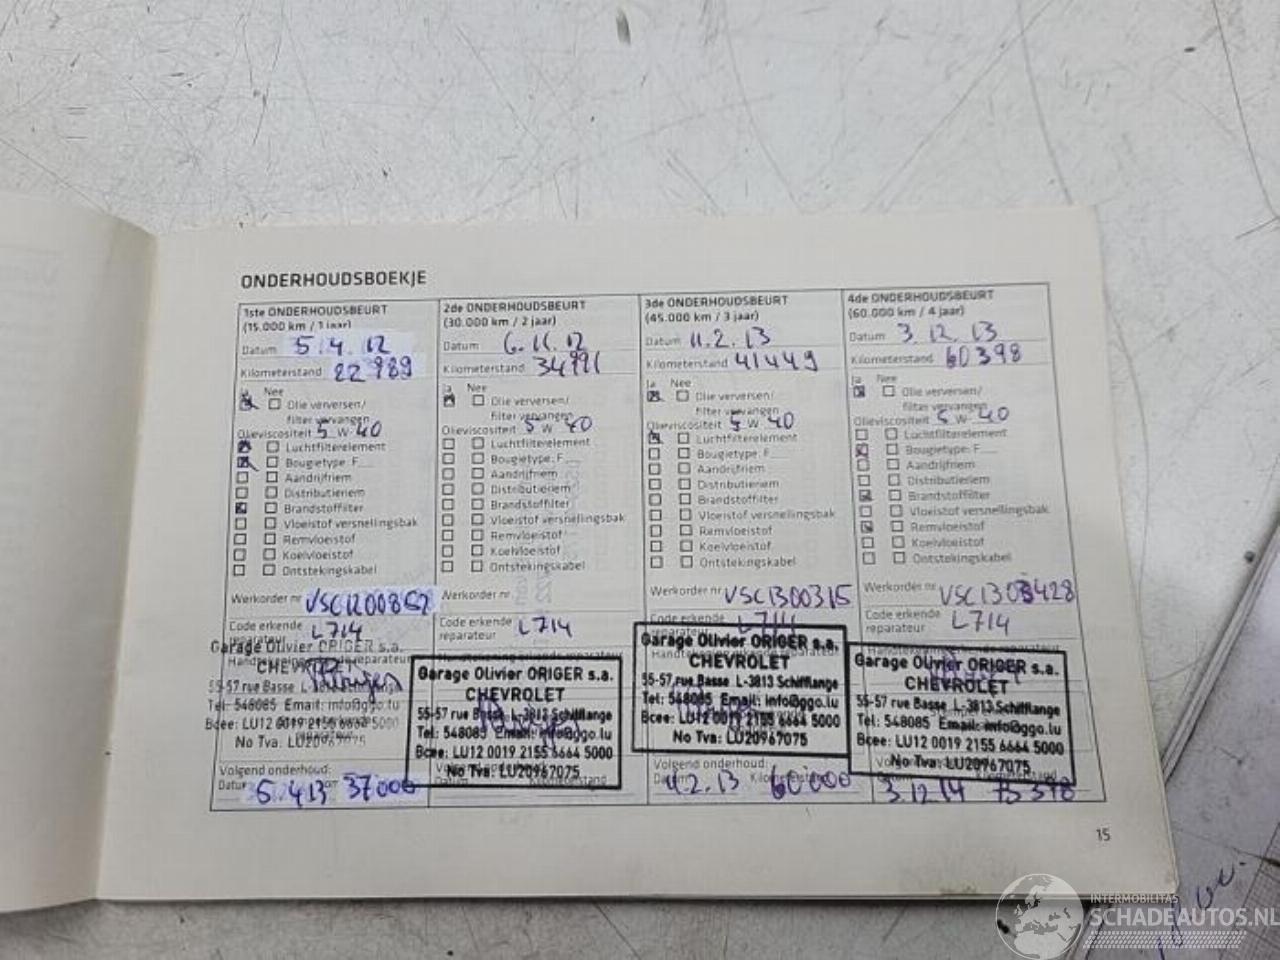 ONDERHOUDSBOEKJE
1ste ONDERHOUDSBEURT
(15.000 km / 1 jaar)
Datum 5.4.12
Kilometerstand 22989
Ja Nee
Olie verversen/
filter vervangen
Olieviscositeit 5 W 40
Luchtfilterelement
Bougietype: F
Aandrijfriem
Distributieriem
Brandstoffilter
Vloeistof versnellingsbak
Remvloeistof
Koelvloeistof
Ontstekingskabel
Werkorder nr VSC1200862
Code erkende
reparateur L714
Garage Olivier ORIGER s.a.
CHEVROLET
55-57 rue Basse L-3813 Schifflange
Tel: 548085 Email: info@ggo.lu
Bcee: LU12 0019 2155 6664 5000
No Tva: LU20967075
Volgend onderhoud:
Datum 5.4.13 37000
2de ONDERHOUDSBEURT
(30.000 km / 2 jaar)
Datum 6.11.12
Kilometerstand 34991
Ja Nee
Olie verversen/
filter vervangen
Olieviscositeit 5 W 40
Luchtfilterelement
Bougietype: F
Aandrijfriem
Distributieriem
Brandstoffilter
Vloeistof versnellingsbak
Remvloeistof
Koelvloeistof
Ontstekingskabel
Werkorder nr
Code erkende
reparateur L714
Garage Olivier ORIGER s.a.
CHEVROLET
55-57 rue Basse L-3813 Schifflange
Tel: 548085 Email: info@ggo.lu
Bcee: LU12 0019 2155 6664 5000
No Tva: LU20967075
Datum Kilometerstand
3de ONDERHOUDSBEURT
(45.000 km / 3 jaar)
Datum 11.2.13
Kilometerstand 41449
Ja Nee
Olie verversen/
filter vervangen
Olieviscositeit 5 W 40
Luchtfilterelement
Bougietype: F
Aandrijfriem
Distributieriem
Brandstoffilter
Vloeistof versnellingsbak
Remvloeistof
Koelvloeistof
Ontstekingskabel
Werkorder nr VSC1300315
Code erkende
reparateur L714
Handtekening erkende reparateur
Garage Olivier ORIGER s.a.
CHEVROLET
55-57 rue Basse L-3813 Schifflange
Tel: 548085 Email: info@ggo.lu
Bcee: LU12 0019 2155 6664 5000
No Tva: LU20967075
Datum Kilometerstand
2.13 60000
4de ONDERHOUDSBEURT
(60.000 km / 4 jaar)
Datum 3.12.13
Kilometerstand 60398
Ja Nee
Olie verversen/
filter vervangen
Olieviscositeit 5 W 40
Luchtfilterelement
Bougietype: F
Aandrijfriem
Distributieriem
Brandstoffilter
Vloeistof versnellingsbak
Remvloeistof
Koelvloeistof
Ontstekingskabel
Werkorder nr VSC1303428
Code erkende
reparateur L714
Garage Olivier ORIGER s.a.
CHEVROLET
55-57 rue Basse L-3813 Schifflange
Tel: 548085 Email: info@ggo.lu
Bcee: LU12 0019 2155 6664 5000
No Tva: LU20967075
Kilometerstand
3.12.14 75398
15
INTERMOBILITAS
SCHADEAUTOS.NL